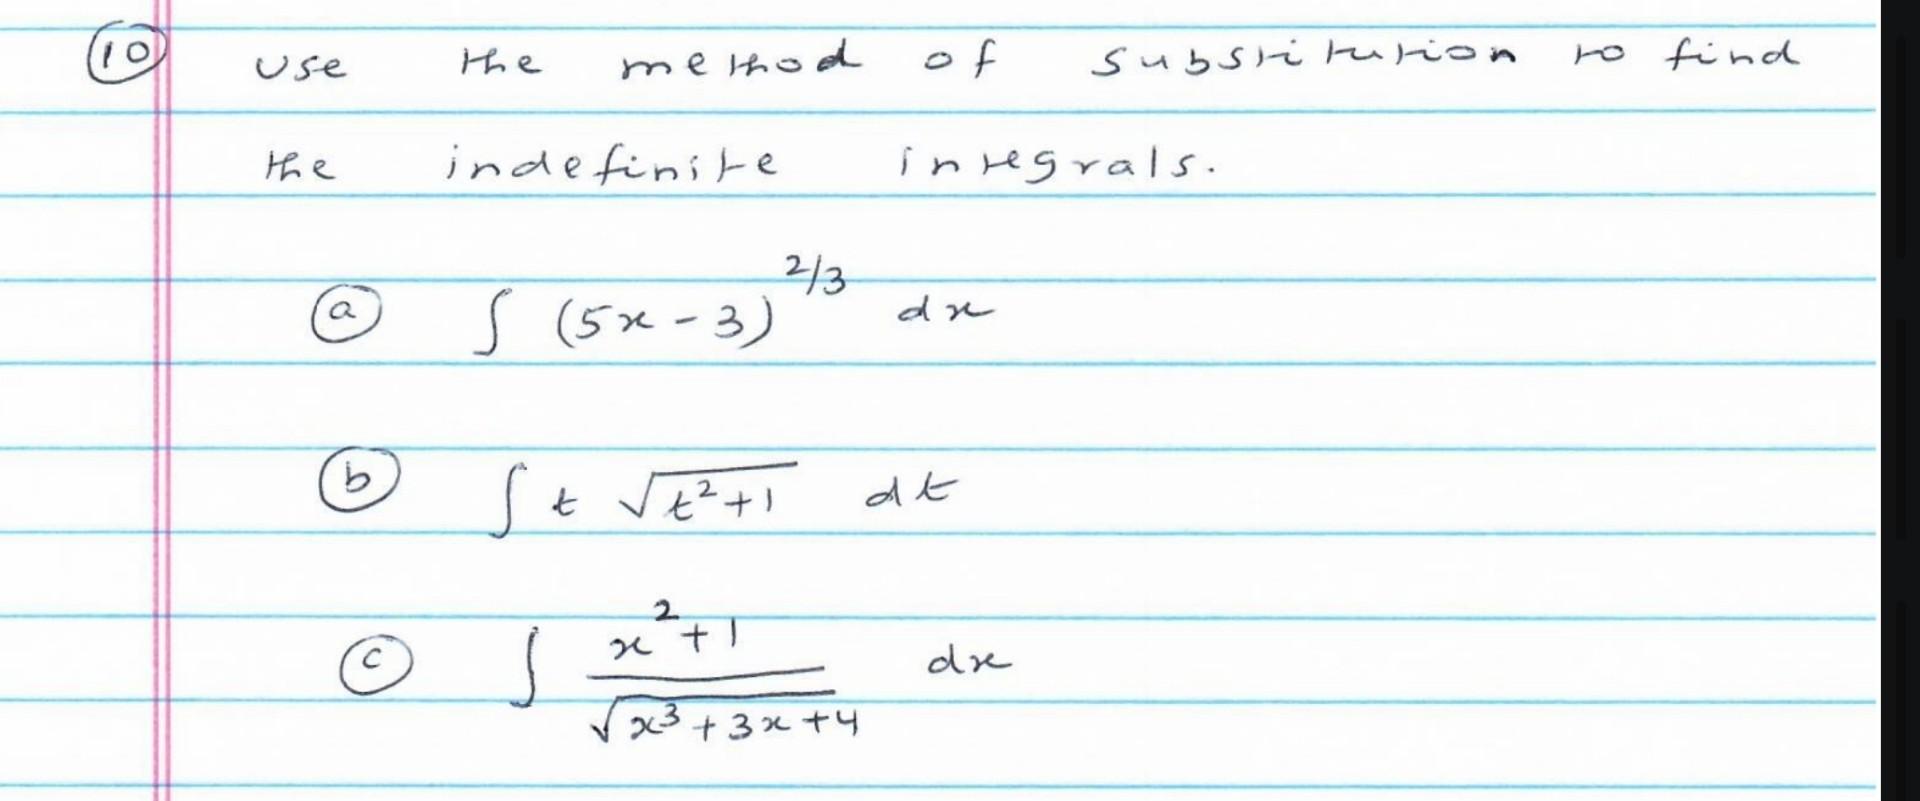 (10) Use the method of substitution to find
the indefinite integrals.
(a) ∫ (5x - 3)^2/3 dx
(b) ∫ t √(t²+1) dt
(c) ∫ (x²+1)/√(x³+3x+4) dx